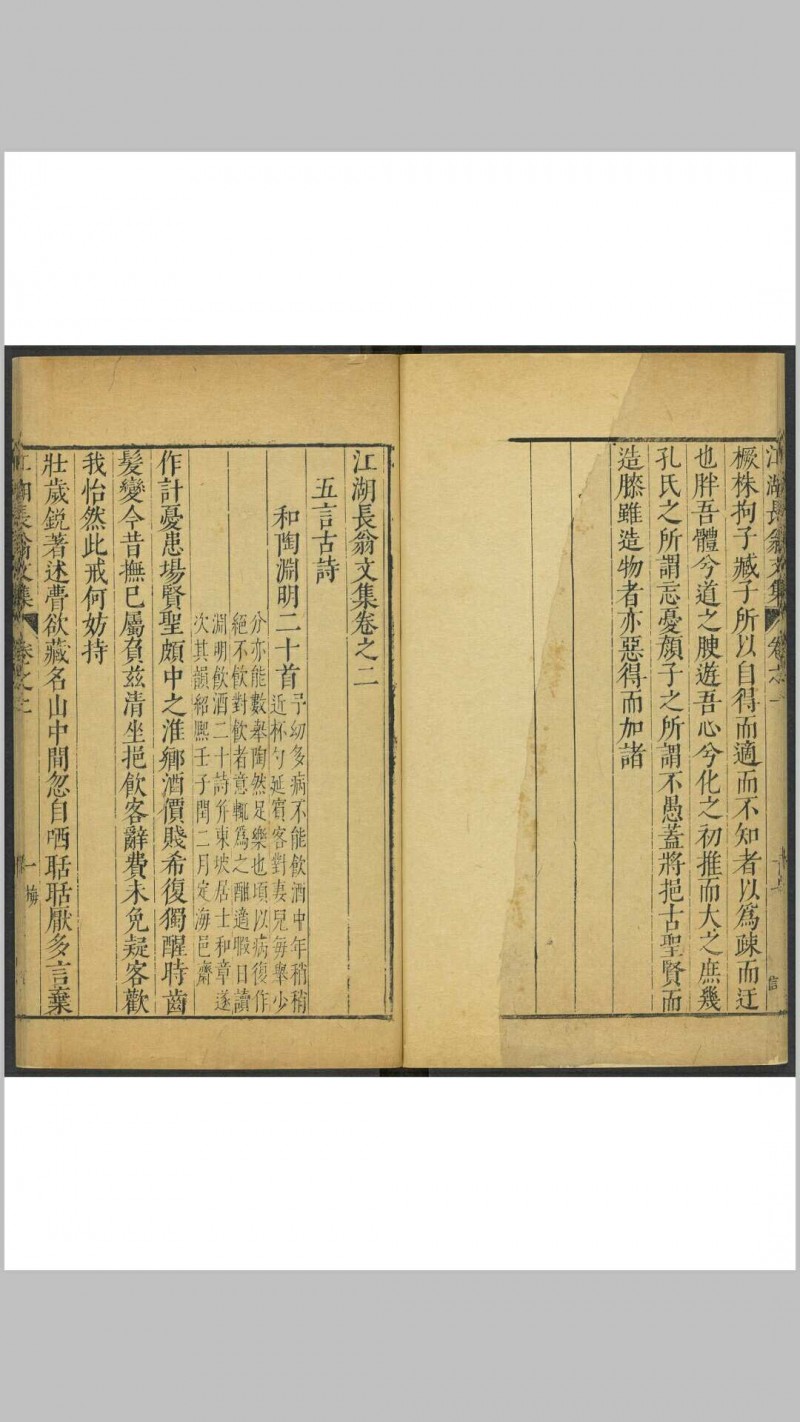 江湖長翁文集 卷之一
橛株拘子臧子所以自得而適而不知者以為疎而迂
也胖吾體兮道之腴遊吾心兮化之初推而大之庶幾
孔氏之所謂忘憂顏子之所謂不愚蓋將挹古聖賢而
造膝雖造物者亦惡得而加諸
江湖長翁文集卷之二
五言古詩
和陶淵明二十首
予幼多病不能飲酒中年稍稍
近杯勺延賓客對妻兒每舉少
分亦能數舉陶然足樂也頃以病復作
絕不飲對飲者意輒為之醺適暇日讀
淵明飲酒二十詩并東坡居士和章遂
次其韻紹熙壬子閏二月定海邑齋
作計憂患場賢聖頗中之淮鄉酒價賤希復獨醒時齒
髮變今昔撫已屬負茲清坐挹飲客辭費未免疑客歡
我怡然此戒何妨持
壯歲銳著述瞢欲藏名山中間忽自哂聒聒厭多言棄
江湖長翁文集 卷之二
一